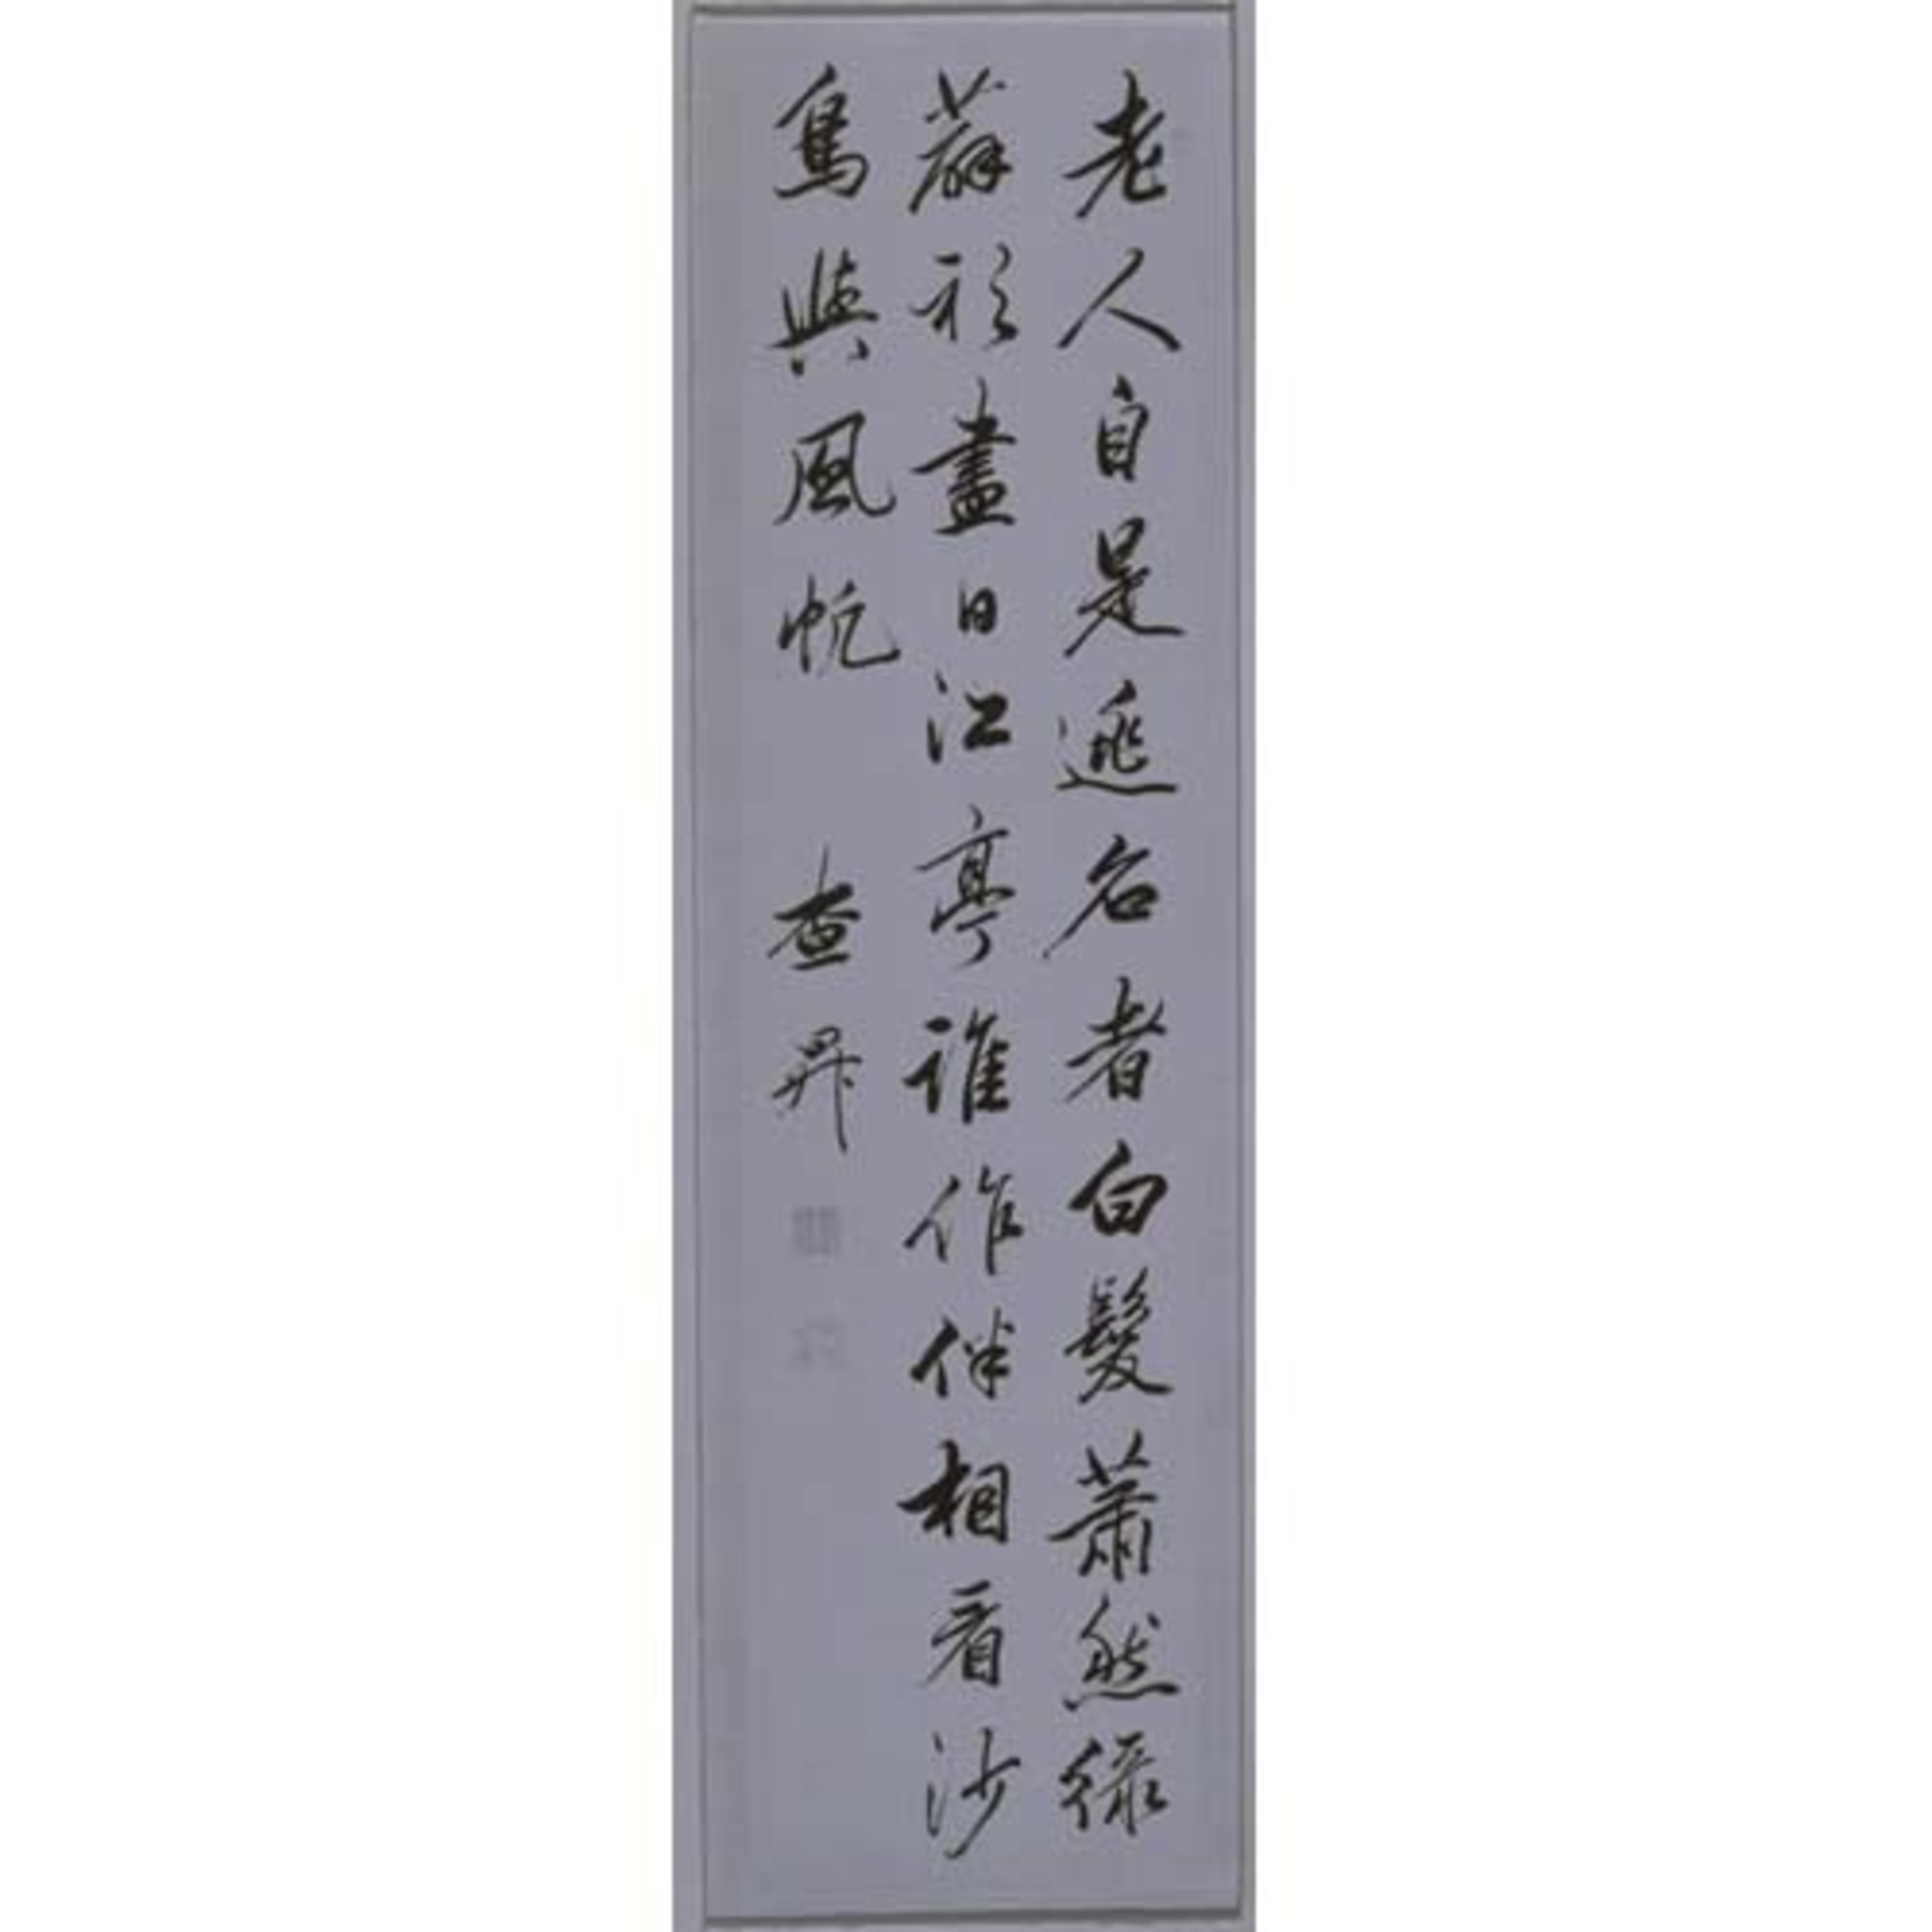 老人自是逃名者白髮蕭然綠
薜衫盡日江亭誰作伴相看沙
鳥與風帆
查昇